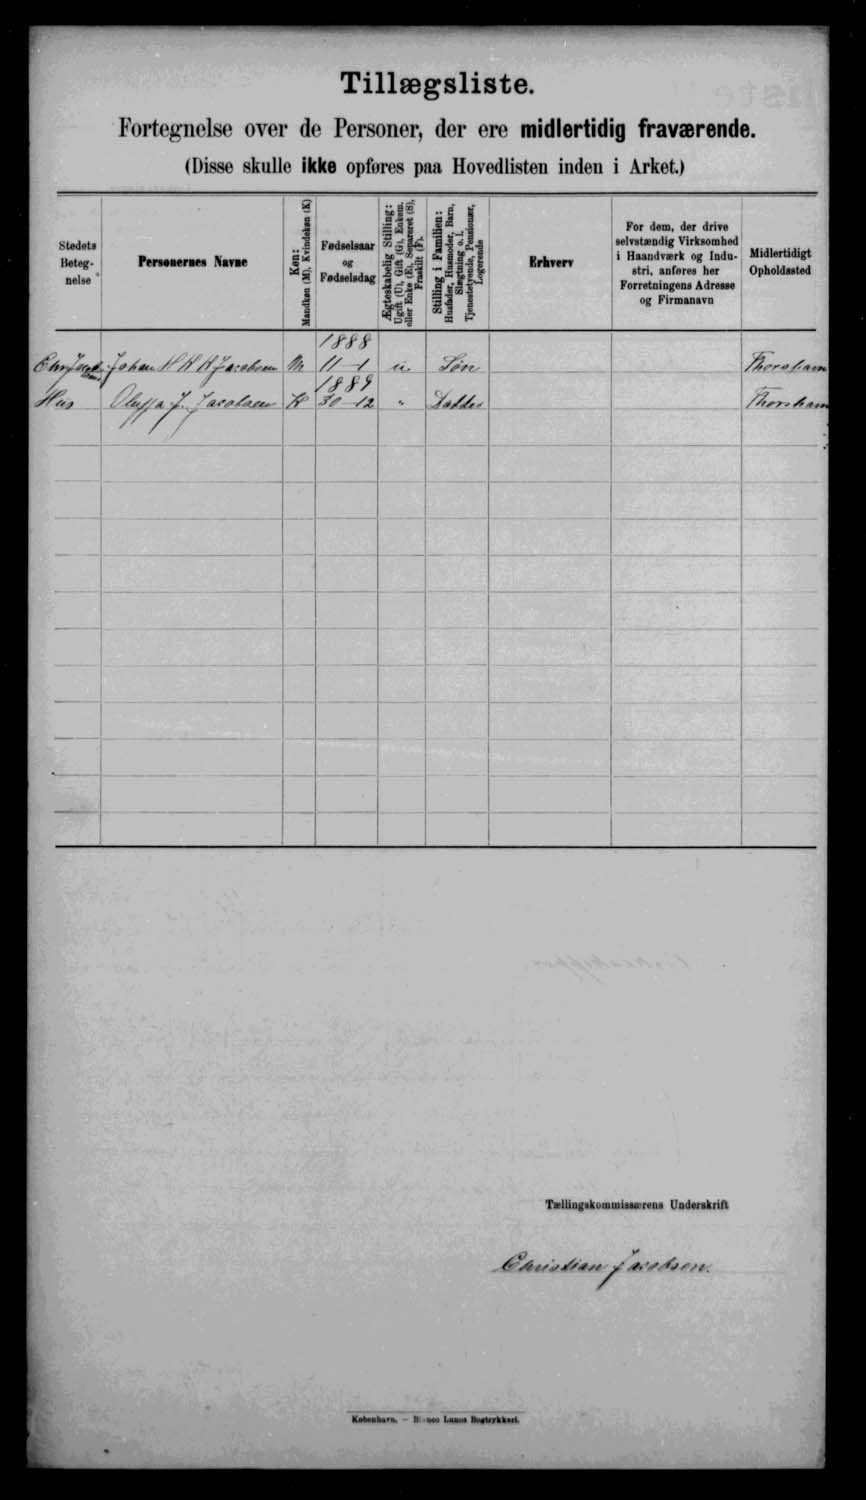 Tillægsliste.
Fortegnelse over de Personer, der ere midlertidig fraværende.
(Disse skulle ikke opføres paa Hovedlisten inden i Arket.)
Stedets
Beteg-
nelse
Personernes Navne
Køn:
Mandkøn (M), Kvindekøn (K)
Fødselsaar
og
Fødselsdag
Ægteskabelig Stilling:
Ugift (U), Gift (G), Enkem.
eller Enke (E), Separeret (S),
Fraskilt (F).
Stilling i Familien:
Husfader, Husmoder, Barn,
Slægtning o. l.
Tjenestetyende, Pensionær,
Logerende
Erhverv
For dem, der drive
selvstændig Virksomhed
i Haandværk og Indu-
stri, anføres her
Forretningens Adresse
og Firmanavn
Midlertidigt
Opholdssted
1888
Johan H K A Jacobsen M 11-1 u Søn Thorshavn
1889
Hus Oluffa J. Jacobsen K 30-12 " Datter Thorshavn
Tællingskommissærens Underskrift
Christian Jacobsen.
København. — Bianco Lunos Bogtrykkeri.